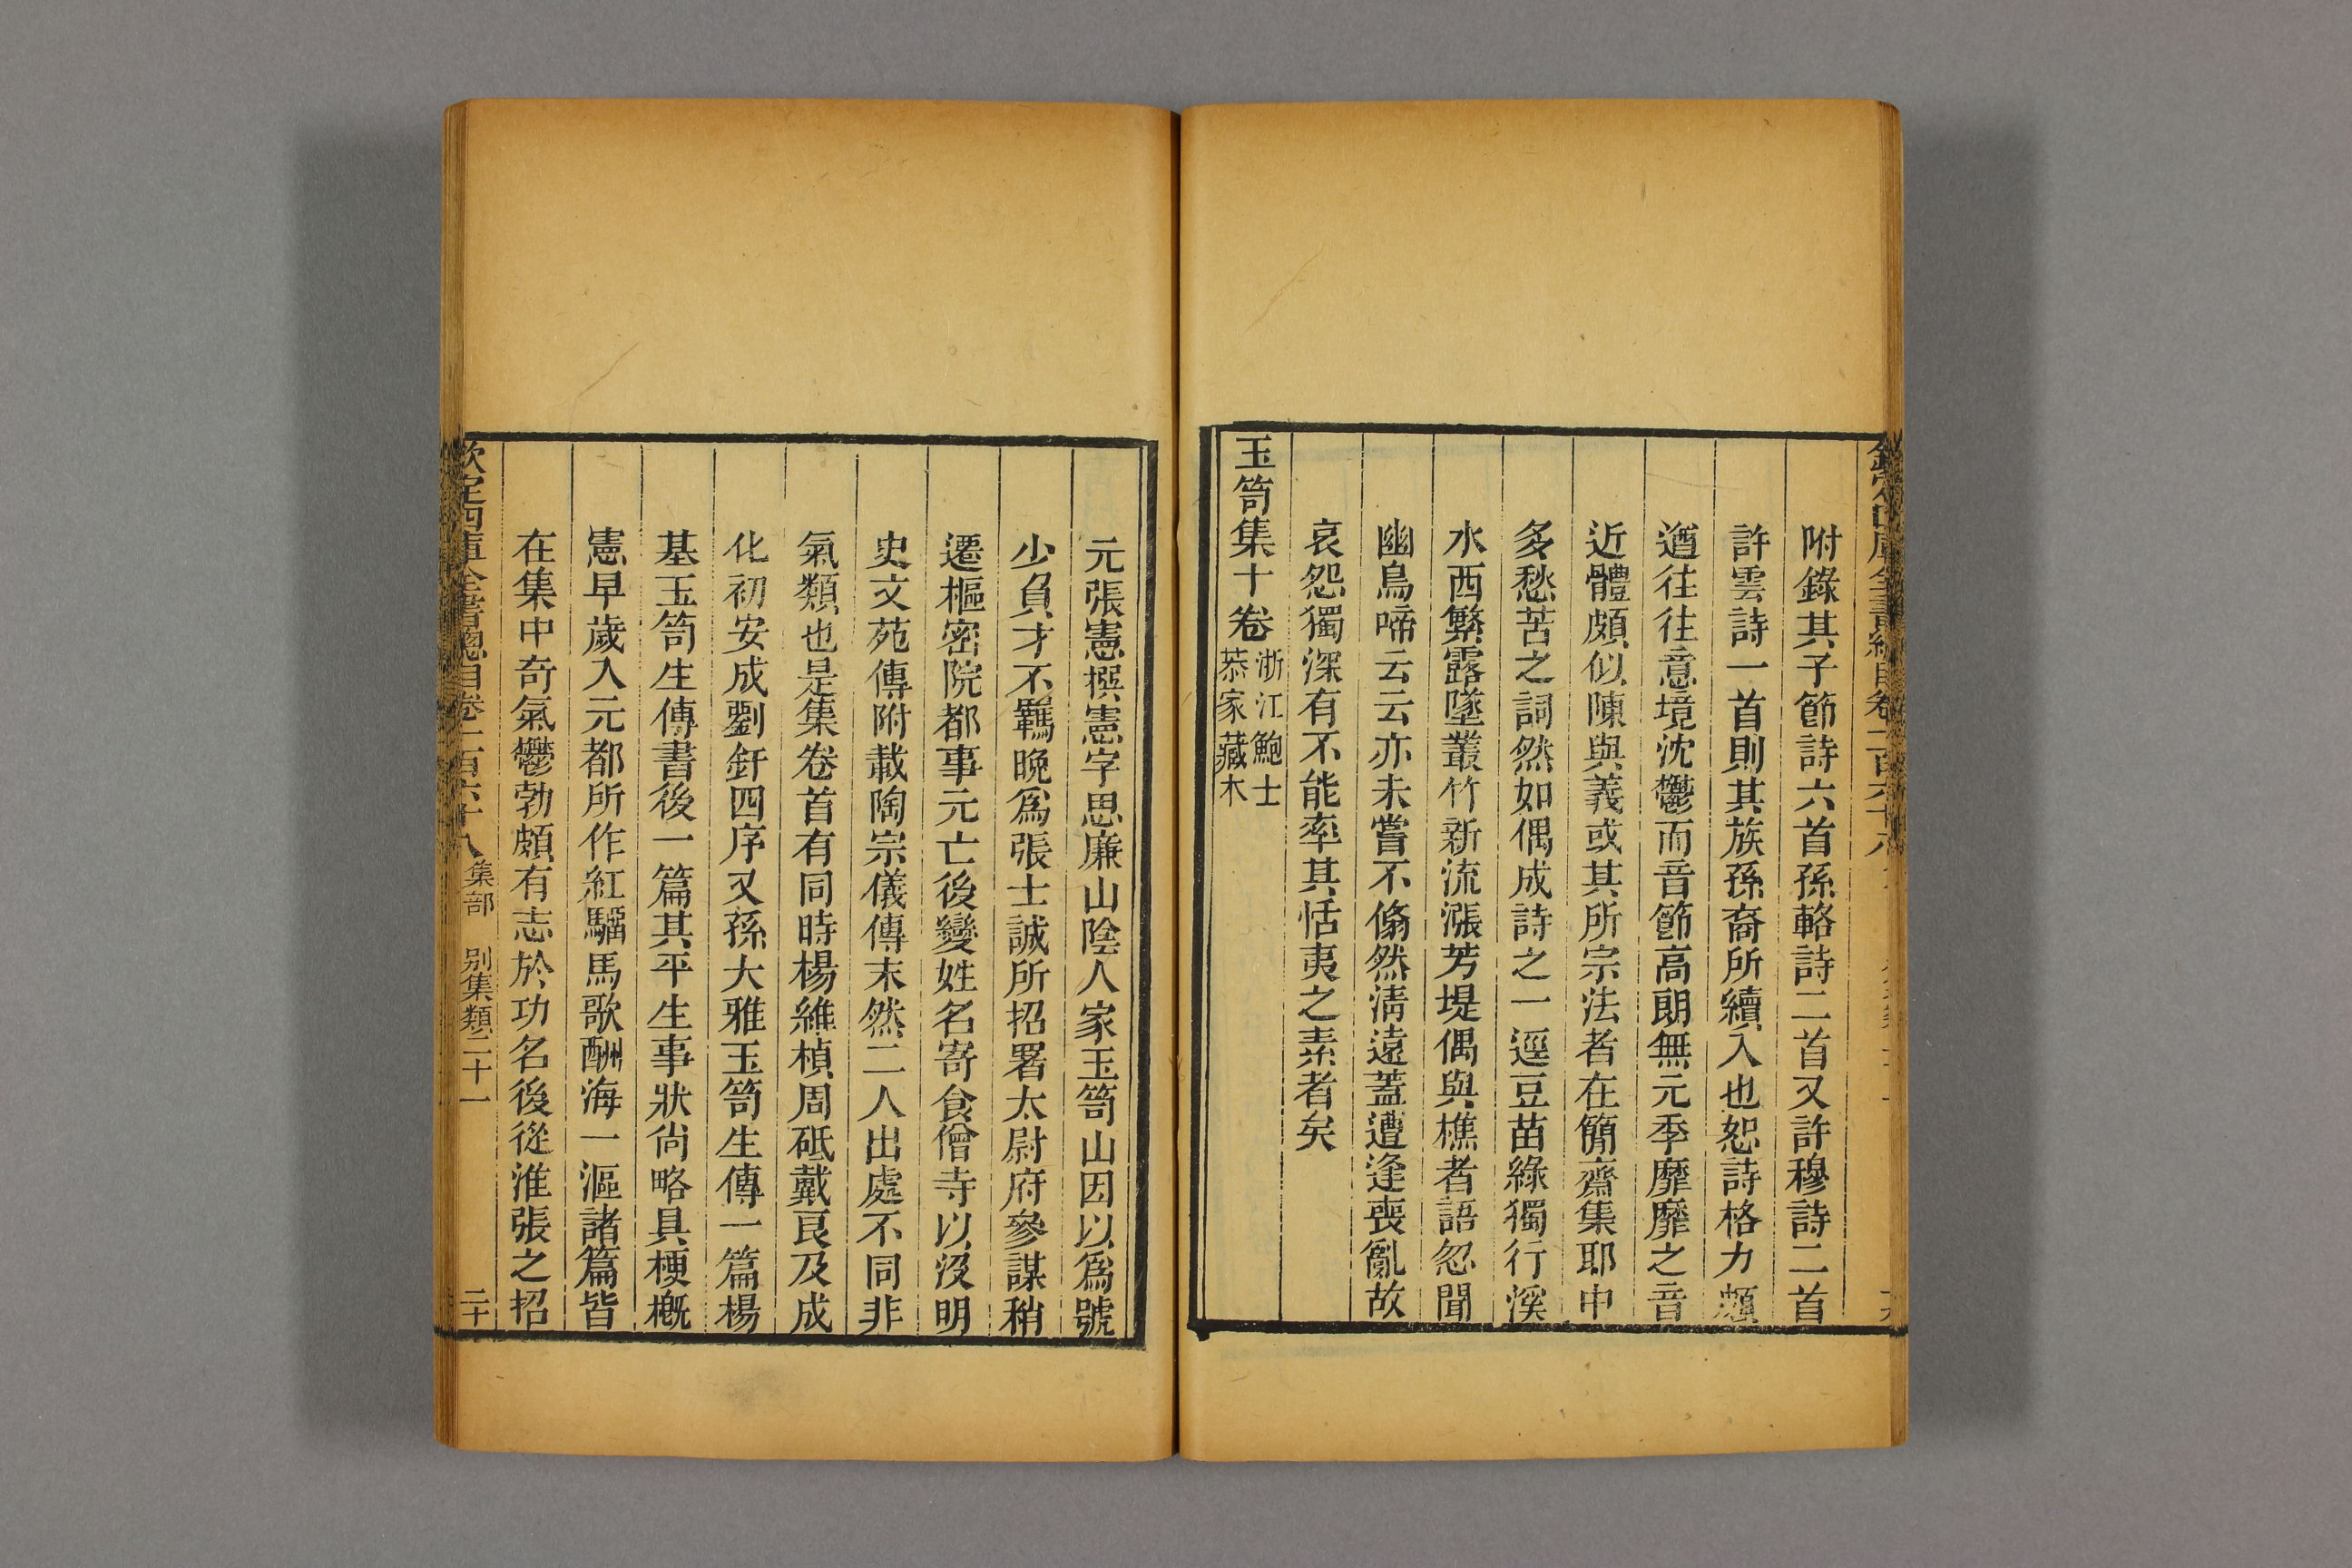 附錄其子節詩六首孫輅詩二首又許穆詩二首
許雲詩一首則其族孫裔所續入也恕詩格力頗
遒往往意境沈鬱而音節高朗無元季靡靡之音
近體頗似陳與義或其所宗法者在簡齋集耶中
多愁苦之詞然如偶成詩之一逕豆苗綠獨行溪
水西繁露墜叢竹新流漲芳堤偶與樵者語忽聞
幽鳥啼云云亦未嘗不翛然淸遠蓋遭逢喪亂故
哀怨獨深有不能率其恬夷之素者矣
玉笥集十卷浙江鮑士
恭家藏本
元張憲撰憲字思廉山陰人家玉笥山因以爲號
少負才不羈晚爲張士誠所招署太尉府參謀稍
遷樞密院都事元亡後變姓名寄食僧寺以沒明
史文苑傳附載陶宗儀傳末然二人出處不同非
氣類也是集卷首有同時楊維楨周砥戴良及成
化初安成劉釪四序又孫大雅玉笥生傳一篇楊
基玉笥生傳書後一篇其平生事狀尙略具梗槪
憲早歲入元都所作紅騮馬歌酬海一漚諸篇皆
在集中奇氣鬱勃頗有志於功名後從淮張之招
欽定四庫全書總目卷一百六十八 集部 別集類二十一 二十